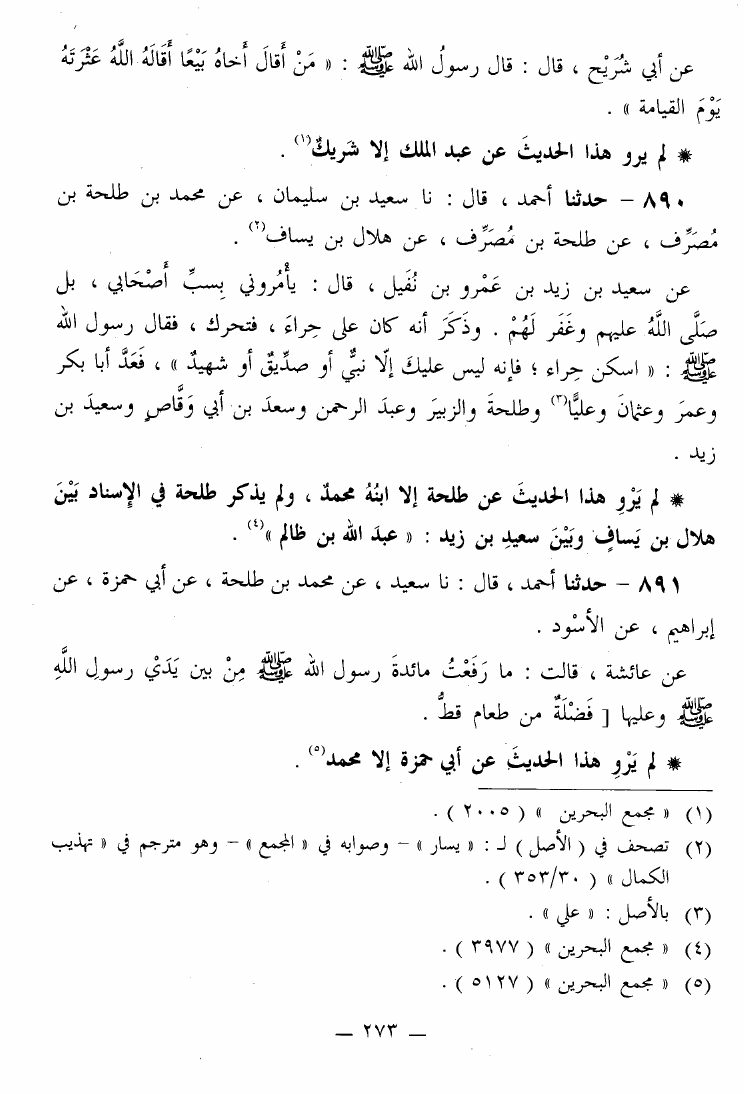 عن أبي شُرَيْح ، قال : قال رسولُ الله ﷺ : « مَنْ أَقالَ أَخاهُ بَيْعًا أَقَالَهُ اللَّهُ عَثْرَتَهُ
يَوْمَ القيامة » .
* لم يرو هذا الحديثَ عن عبد الملك إلا شَريكٌ(١) .
٨٩٠ – حدثنا أحمد ، قال : نا سعيد بن سليمان ، عن محمد بن طلحة بن
مُصَرِّف ، عن طلحة بن مُصَرِّف ، عن هلال بن يساف(٢) .
عن سعيد بن زيد بن عَمْرو بن نُفَيل ، قال : يأْمُروني بِسبِّ أَصْحَابي ، بل
صَلَّى اللَّهُ عليهم وغَفَر لَهُمْ . وذَكَرَ أنه كان على حِراءَ ، فتحرك ، فقال رسول الله
ﷺ : « اسكن حِراء ؛ فإنه ليس عليكَ إلَّا نبيٌّ أو صدِّيقٌ أو شهيدٌ » ، فَعَدَّ أبا بكر
وعمرَ وعثمانَ وعليًّا(٣) وطلحةَ والزبيرَ وعبدَ الرحمن وسعدَ بن أبي وَقَّاصٍ وسعيدَ بن
زيد .
* لم يَرْوِ هذا الحديثَ عن طلحة إلا ابنُهُ محمدٌ ، ولم يذكر طلحة في الإِسناد بَيْنَ
هلال بن يَسافٍ وبَيْنَ سعيدِ بن زيد : « عبدَ الله بن ظالم »(٤) .
٨٩١ – حدثنا أحمد ، قال : نا سعيد ، عن محمد بن طلحة ، عن أبي حمزة ، عن
إبراهيم ، عن الأسْود .
عن عائشة ، قالت : ما رَفَعْتُ مائدةَ رسول الله ﷺ مِنْ بين يَدَيْ رسولِ اللَّهِ
ﷺ وعليها [ فَضْلَةٌ من طعام قطُّ .
* لم يَرْوِ هذا الحديثَ عن أبي حمزة إلا محمد(٥) .
(١) « مجمع البحرين » ( ٢٠٠٥ ) .
(٢) تصحف في ( الأصل ) لـ : « يسار » – وصوابه في « المجمع » – وهو مترجم في « تهذيب
الكمال » ( ٣٥٣/٣٠ ) .
(٣) بالأصل : « علي » .
(٤) « مجمع البحرين » ( ٣٩٧٧ ) .
(٥) « مجمع البحرين » ( ٥١٢٧ ) .
— ٢٧٣ —